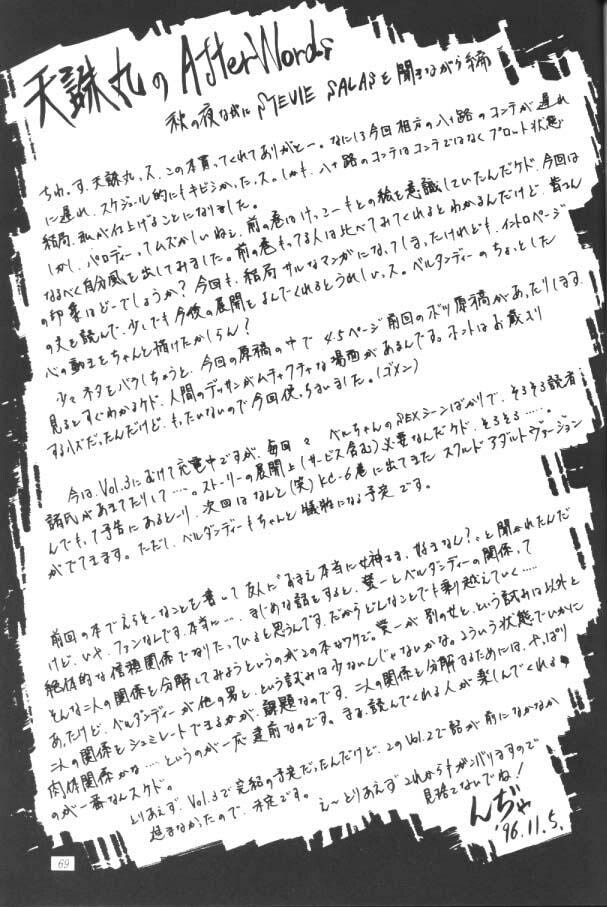 天誅丸の After Words
秋の夜ながに STEVIE SALASを聞きながら編
ちわっす、天誅丸っス、この本買ってくれてありがとー。なにげに今回相方の八十路のコンテが遅れ
に遅れ、スケジュール的にもキビシかったっス。しかも、八十路のコンテはコンテではなくプロット状態
結局、私が仕上げることになりました。
しかし、パロディーってムズかしいねぇ、前の巻はけっこーもとの絵を意識していたんだケド、今回は
なるべく自分風を出してみました。前の巻もってる人は比べてみてくれるとわかるんだけど、皆さん
の印象はどーでしょうか?今回も、結局サルなマンガになってしまったけれども、イントロページ
の文を読んで、少しでも今後の展開をよんでくれるとうれしいっス。ベルダンディーのちょっとした
心の動キをちゃんと描けたかしらん?
少々ネタをバラしちゃうと、今回の原稿の中で 4.5ページ前回のボツ原稿があったりします。
見るとすぐわかるケド、人間のデッサンがムチャクチャな場面があるんです。ホントはお蔵入り
するハズだったんだけど、もったいないので今回使っちまいました。(ゴメン)
今は、Vol.3にむけて充電中ですが、毎回々 ベルちゃんのSEXシーンばかりで、そろそろ読者
諸氏があきてたりして…。ストーリーの展開上(サービス含む)必要なんだケド、そろそろ……。
んでもって予告にあるとーり、次回はなんと(笑)KC-6巻に出てきた スクルドアダルトヴァージョン
がでてきます。ただし、ベルダンディーもちゃんと犠牲になる予定です。
前回の本でえらそーなことを書いて友人に"おまえ本当に女神さま、好きなん?"と聞かれたんだ
けど、いや、ファンなんです、本当に…。まじめな話をすると、螢一とベルダンディーの関係って
絶体的な信頼関係でなりたっていると思うんです。だからどんなことでも乗り越えていく……
そんな二人の関係を分解してみようというのがこの本なワケで。螢一が別の女と、という試みは以外と
あったけど、ベルダンディーが他の男と、という試みは少ないんじゃないかな。こういう状態でいかに
二人の関係をシュミレートできるかが、課題なのです。二人の関係を分解するためには、やっぱり
肉体関係かな……というのが一応建前なのです。まぁ、読んでくれる人が楽しんでくれる
のが一番なんスケド。
とりあえず、Vol.3で完結の予定だったんだけど、このVol.2で話が前になかなか
進まなかったので、未定です。
え〜とりあえずこれからもガンバリますので
見捨てないでね!
んぢゃ
'96.11.5.
69